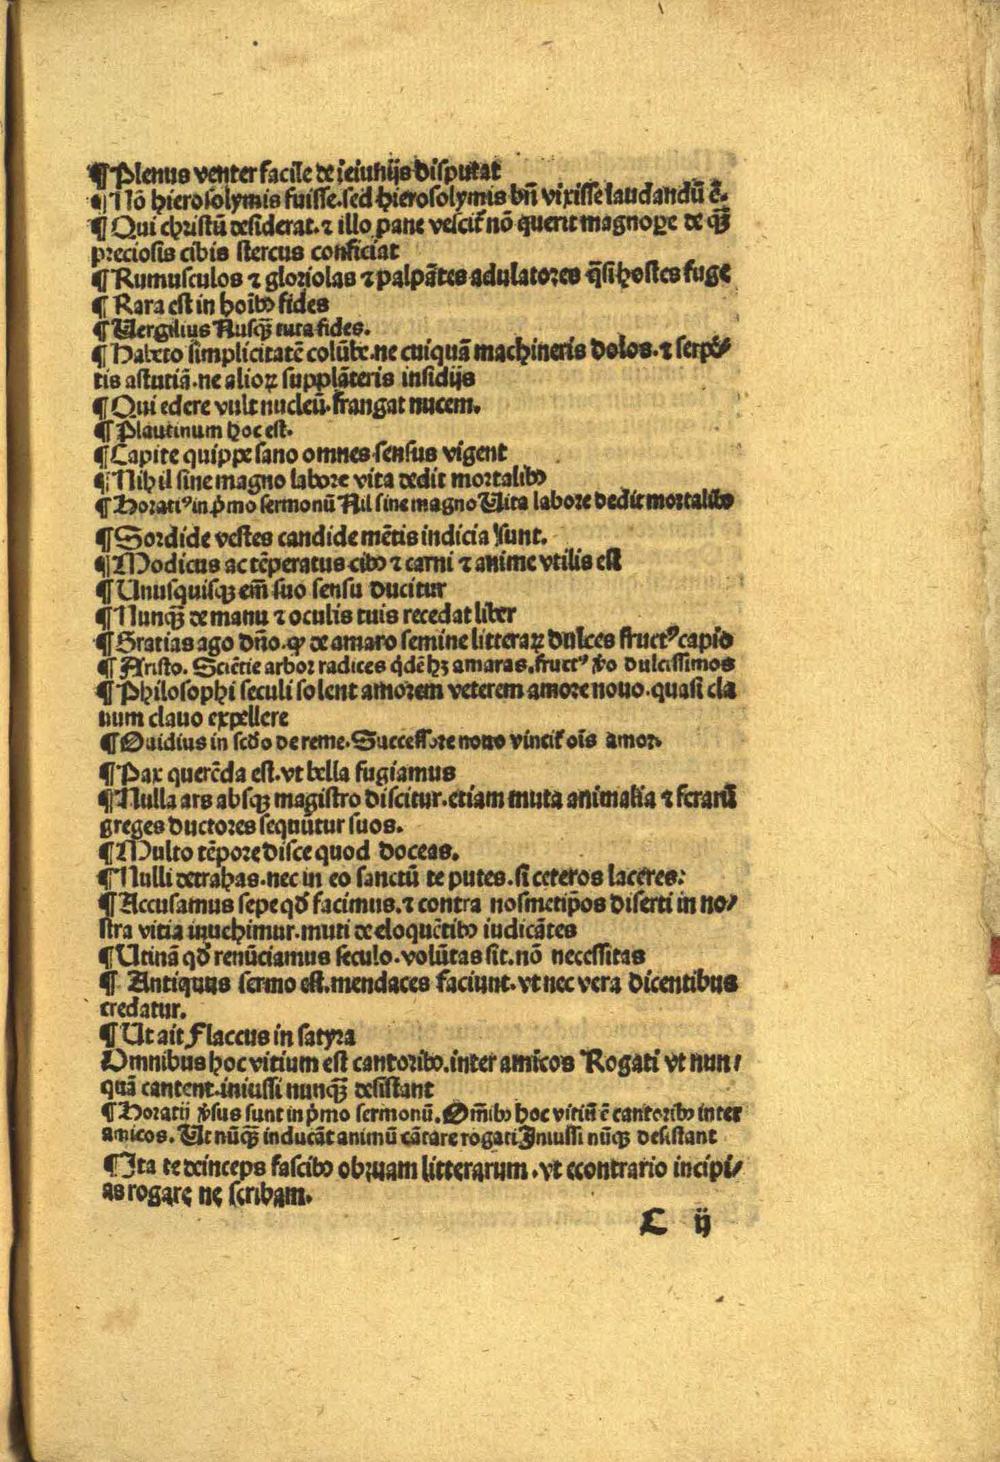 ¶ Plenus venter facile de ieiunijs disputat
¶ Nō hierosolymis fuisse. sed hierosolymis bn̄ vixisse laudandū ē.
¶ Qui christū desiderat. ⁊ illo pane vescit᷑ nō querit magnoꝑe de qͣꝫ
preciosis cibis stercus conficiat
¶ Rumusculos ⁊ gloriolas ⁊ palpātes adulatores qͣsi hostes fuge
¶ Rara est in hoībꝰ fides
¶ Vergilius Nusqͣꝫ tuta fides.
¶ Habeto simplicitatē colūbe. ne cuiquā machineris dolos. ⁊ serpē/
tis astutiā. ne alioꝝ supplāteris insidijs
¶ Qui edere vult nucleū. frangat nucem.
¶ Plautinum hoc est.
¶ Capite quippe sano omnes sensus vigent
¶ Nihil sine magno labore vita dedit mortalibꝰ
¶ Horatiꝰ in p̄mo sermonū Nil sine magno Vita labore dedit mortalibꝰ
¶ Sordide vestes candide mētis indicia sunt.
¶ Modicus ac tēperatus cibꝰ ⁊ carni ⁊ anime vtilis est
¶ Unusquisqꝫ em̄ suo sensu ducitur
¶ Nunqͣꝫ de manu ⁊ oculis tuis recedat liber
¶ Gratias ago dn̄o. ꝙ de amaro semine litteraꝝ dulces fructꝰ capio
¶ Aristo. Sciētie arbor radices qͥdē hꝫ amaras. fructꝰ ꝟo dulcissimos
¶ Philosophi seculi solent amorem veterem amore nouo. quasi cla
uum clauo expellere
¶ Ouidius in scd̄o de reme. Successore nouo vincit᷑ oīs amor.
¶ Pax querēda est. vt bella fugiamus
¶ Nulla ars absqꝫ magistro discitur. etiam muta animalia ⁊ ferarū
greges ductores sequūtur suos.
¶ Multo tēpore disce quod doceas.
¶ Nulli detrahas. nec in eo sanctū te putes. si ceteros laceres:
¶ Accusamus sepe qd̄ facimus. ⁊ contra nosmetip̄os diserti in no/
stra vitia inuehimur. muti de eloquētibꝰ iudicātes
¶ Utinā qd̄ renūciamus seculo. volūtas sit. nō necessitas
¶ Antiquus sermo est. mendaces faciunt. vt nec vera dicentibus
credatur.
¶ Ut ait Flaccus in satyra
Omnibus hoc vitium est cantoribꝰ. inter amicos Rogati vt nun/
quā cantent. iniussi nunqͣꝫ desistant
¶ Horatij ꝟsus sunt in p̄mo sermonū. Om̄ibꝰ hoc vitiū ē cantoribꝰ inter
amicos. Ut nūqͣꝫ inducāt animū cātare rogati Iniussi nūqͣꝫ desistant
¶ Ita te deinceps fascibꝰ obruam litterarum. vt econtrario incipi/
as rogare ne scribam.
C ij